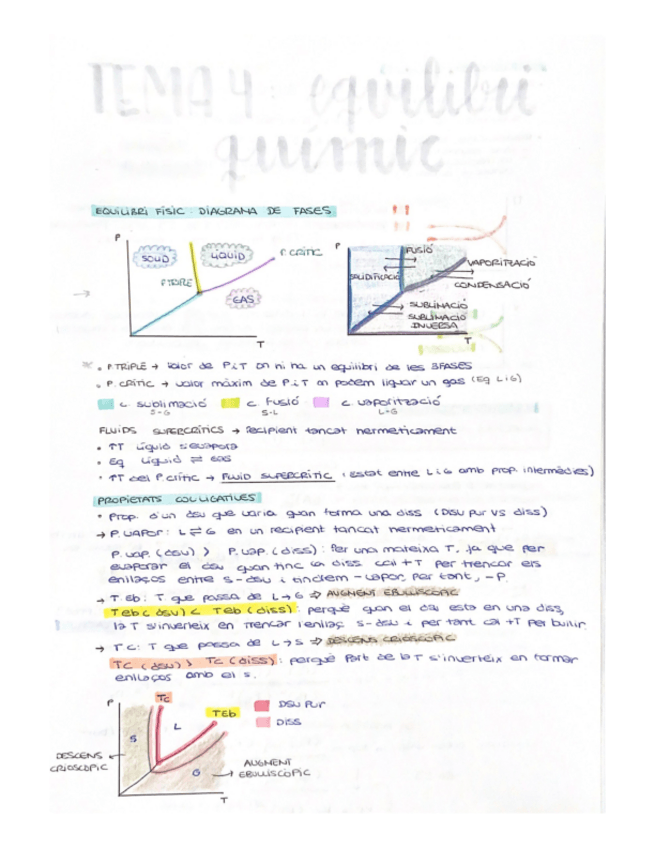 TEMA 4: equilibri
químic
EQUILIBRI FÍSIC: DIAGRAMA DE FASES
P
SÒLID
LÍQUID
P. CRÍTIC
P. TRIPLE
GAS
T
P
FUSIÓ
SOLIDIFICACIÓ
VAPORITZACIÓ
CONDENSACIÓ
SUBLIMACIÓ
SUBLIMACIÓ
INVERSA
T
• P. TRIPLE → valor de P i T on hi ha un equilibri de les 3 FASES
• P. CRÍTIC → valor màxim de P i T on podem liquar un gas (Eq L i G)
c. sublimació c. fusió c. vaporització
S-G S-L L-G
FLUIDS SUPERCRÍTICS → recipient tancat hermèticament
• ↑T líquid s'evapora
• Eq líquid ⇌ gas
• ↑T del P. crític → FLUID SUPERCRÍTIC (estat entre L i G amb prop. intermèdies)
PROPIETATS COL·LIGATIVES
• Prop. d'un dsv que varia quan forma una diss (DSV pur vs diss)
→ P. VAPOR: L ⇌ G en un recipient tancat hermèticament
P. vap. (dsv) > P. vap. (diss): Per una mateixa T, ja que per
evaporar el dsv quan tinc la diss cal +T per trencar els
enllaços entre s-dsv i tindrem -vapor, per tant, -P.
→ T. eb: T que passa de L → G ⇒ AUGMENT EBULLISCÒPIC
Teb (dsv) < Teb (diss): perquè quan el dsv està en una diss,
la T s'inverteix en trencar l'enllaç s-dsv i per tant cal +T per bullir
→ T C: T que passa de L → S ⇒ DESCENS CRIOSCÒPIC
TC (dsv) > TC (diss): perquè part de la T s'inverteix en formar
enllaços amb el s.
P
TC
L
TEb
DSV PUR
DISS
S
DESCENS
CRIOSCÒPIC
G
AUGMENT
EBULLISCÒPIC
T